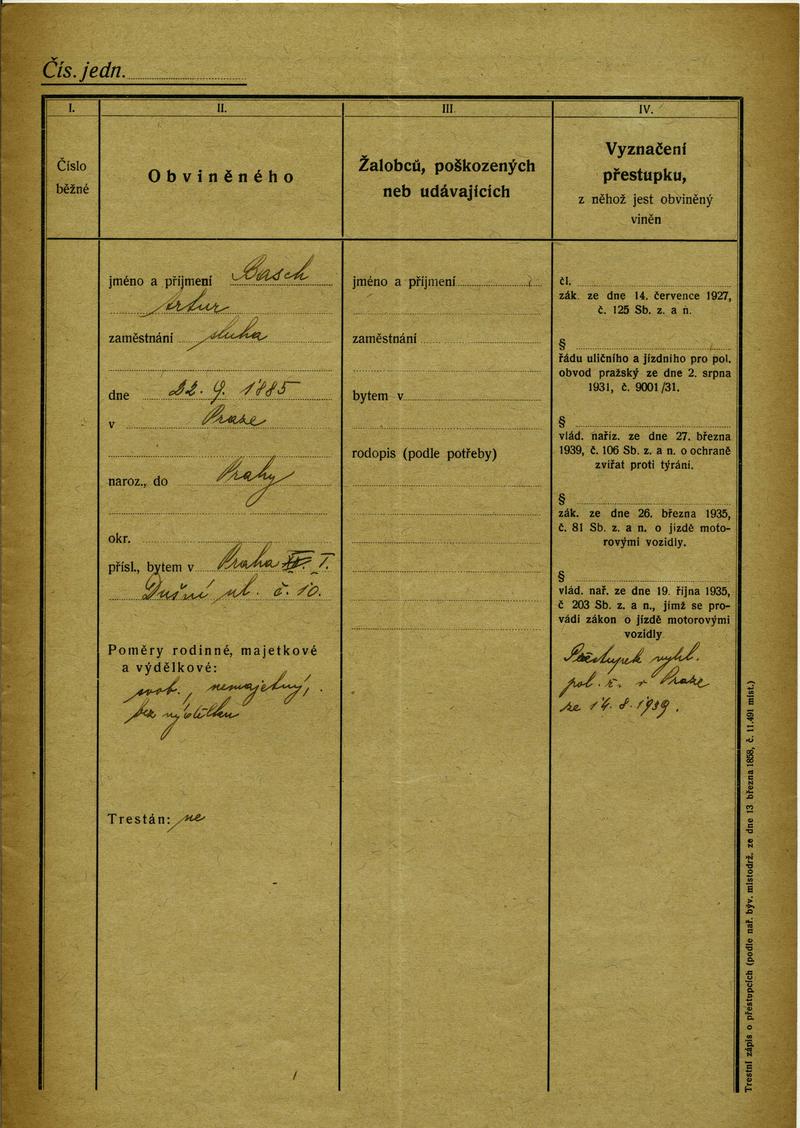 Čís. jedn.
I.
II.
III.
IV.
Číslo
běžné
Obviněného
Žalobců, poškozených
neb udávajících
Vyznačení
přestupku,
z něhož jest obviněný
viněn
jméno a příjmení Basch
Artur
zaměstnání sluha
dne 22. 9. 1885
v Praze
naroz., do Prahy
okr.
přísl., bytem v Praha I.
Dušní ul. č. 10.
Poměry rodinné, majetkové
a výdělkové:
svob., nemajetný,
bez výdělku
Trestán: ne
jméno a příjmení
zaměstnání
bytem v
rodopis (podle potřeby)
čl.
zák. ze dne 14. července 1927,
č. 125 Sb. z. a n.
§
řádu uličního a jízdního pro pol.
obvod pražský ze dne 2. srpna
1931, č. 9001/31.
§
vlád. naříz. ze dne 27. března
1939, č. 106 Sb. z. a n. o ochraně
zvířat proti týrání.
§
zák. ze dne 26. března 1935,
č. 81 Sb. z. a n. o jízdě moto-
rovými vozidly.
§
vlád. nař. ze dne 19. října 1935,
č 203 Sb. z. a n., jímž se pro-
vádí zákon o jízdě motorovými
vozidly
Přestupek vyhl.
pol. ř. v Praze
ze 14. 8. 1939.
Trestní zápis o přestupcích (podle nař. býv. místodrž. ze dne 13 března 1858, č. 11.491 míst.)